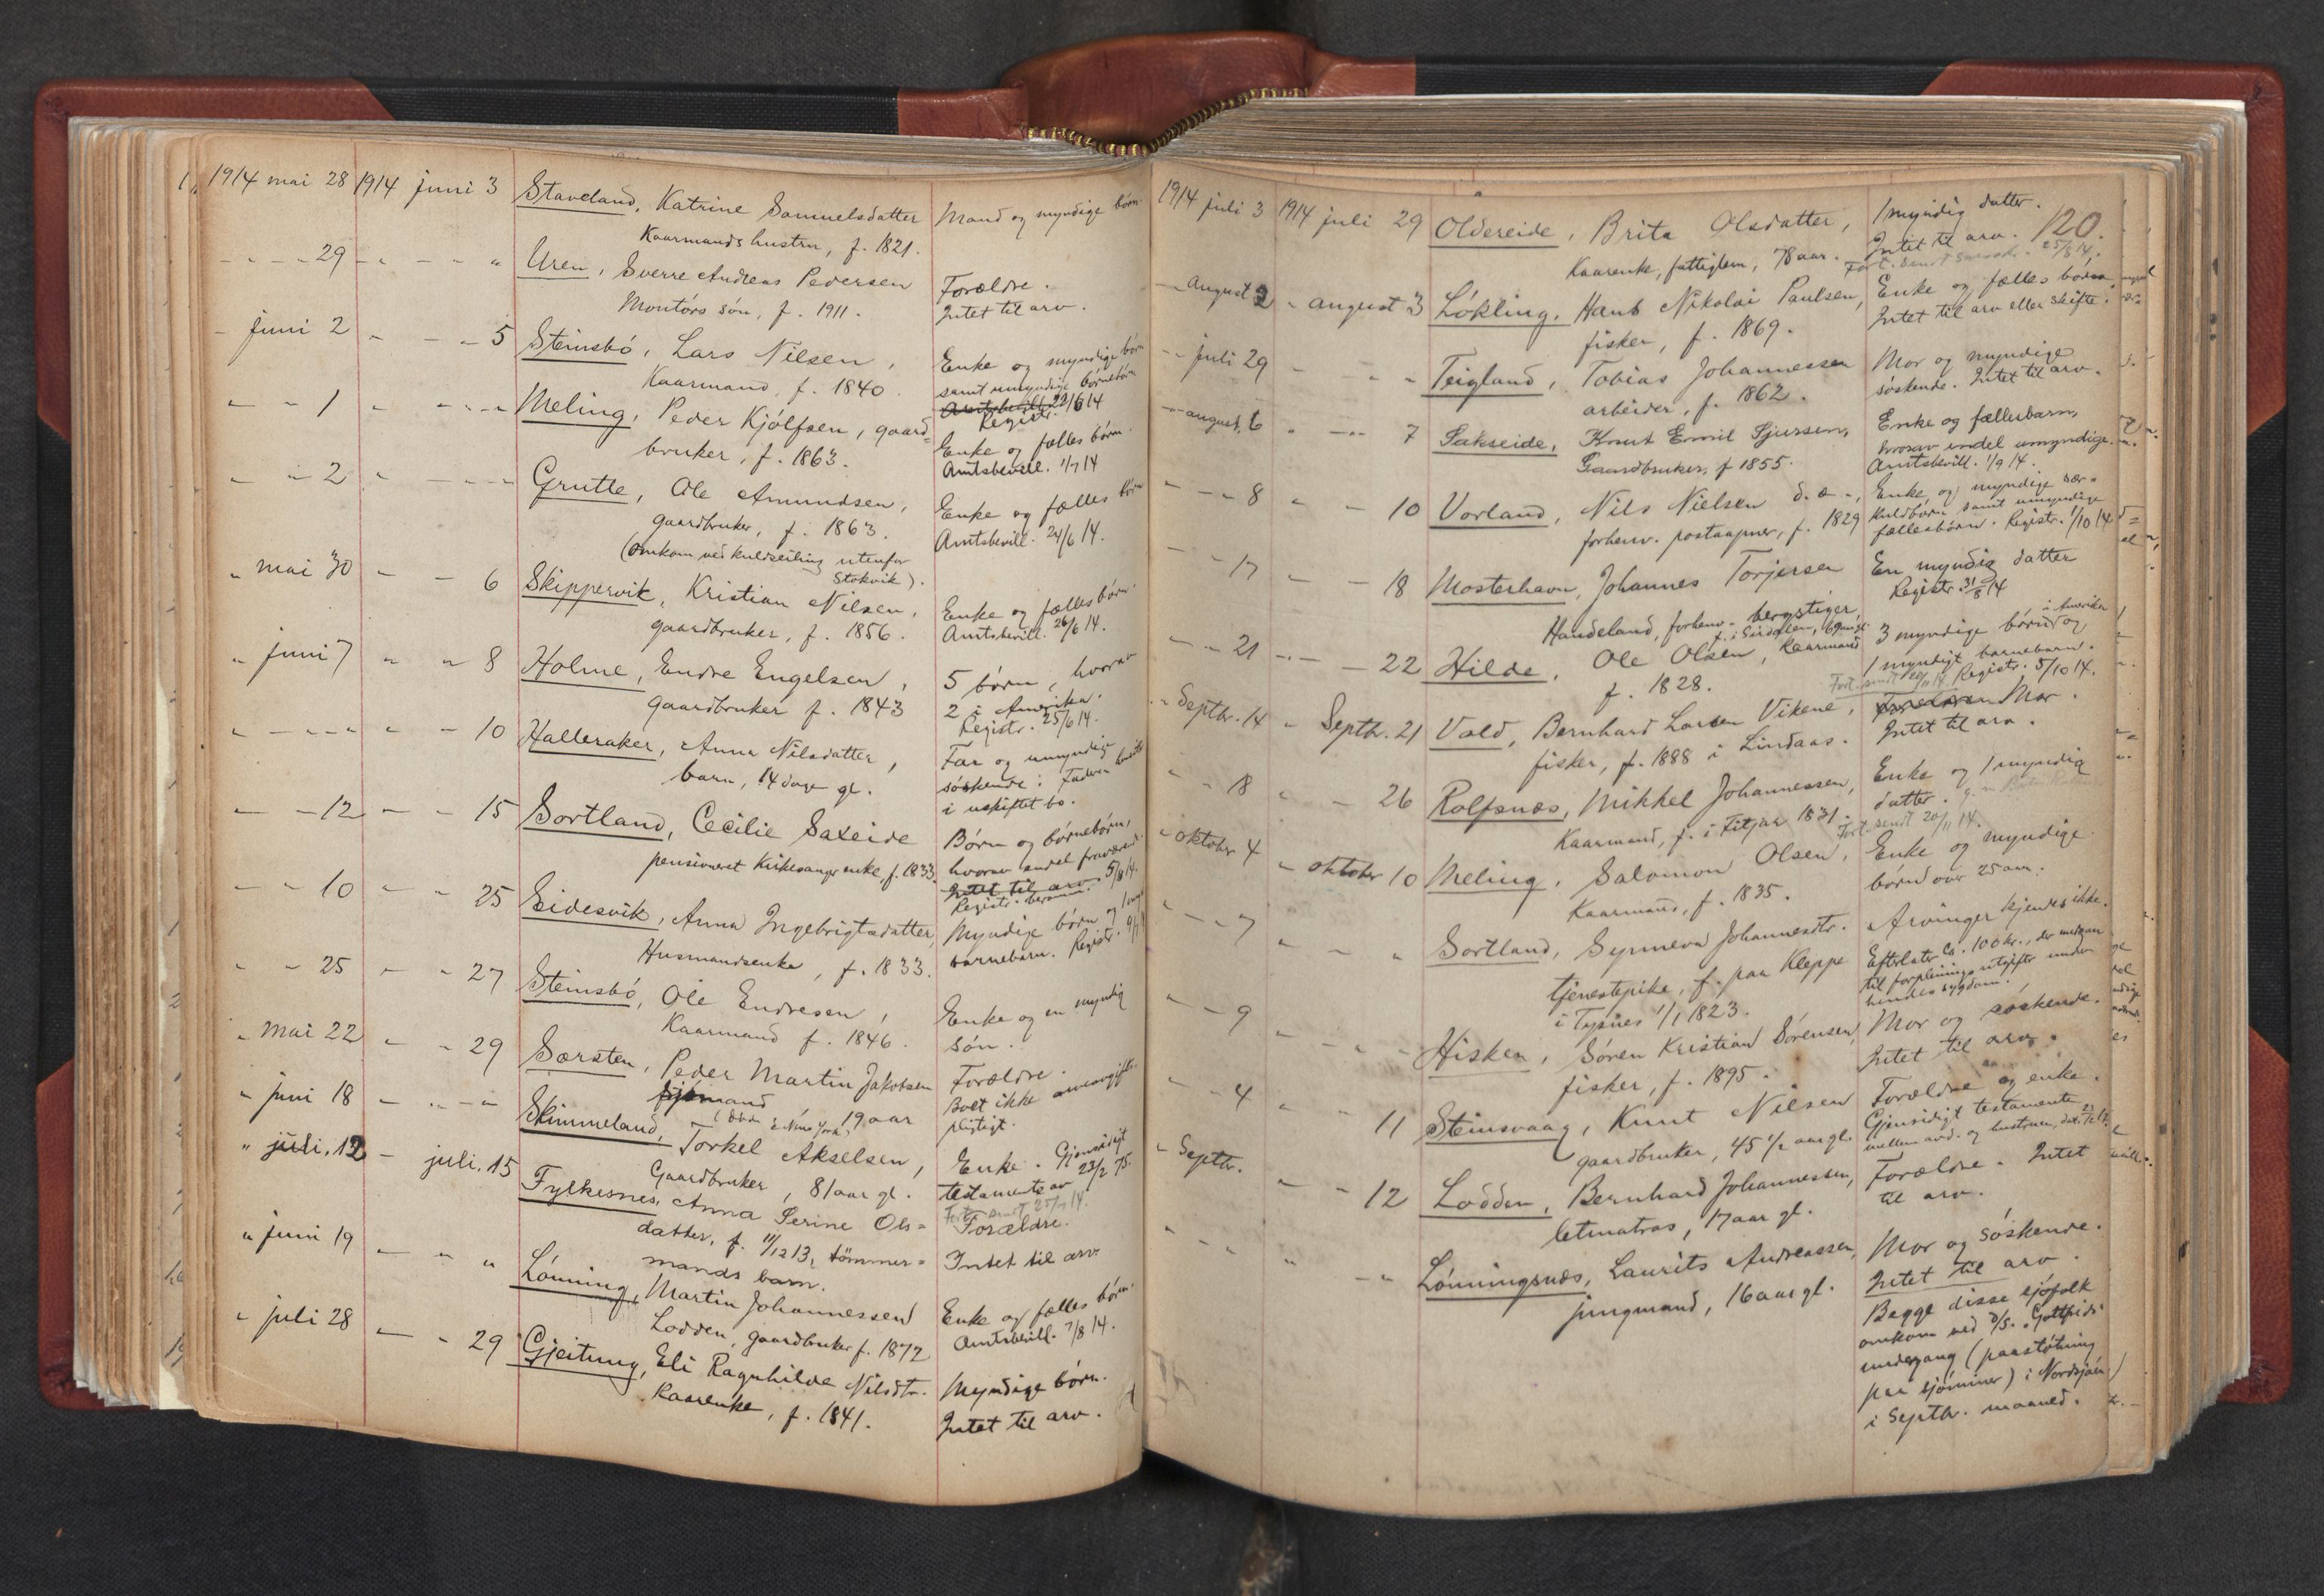 1914 mai 28 1914 juni 3 Staveland, Katrine Samuelsdatter Mand og myndige børn.
Kaarmands hustru, f. 1821.
- - - - 29 - - - - " Uren, Sverre Andreas Pedersen Forældre.
Montørs søn, f. 1911. Intet til arv.
- juni 2 - - - 5 Steinsbø, Lars Nilsen, Enke og myndige børn
Kaarmand, f. 1840. samt umyndige børnebørn
Amtsbevill. 22/6 14
Registr.
- - 1 - - - - Meling, Peder Kjølfsen, gaard= Enke og fælles børn.
bruker, f. 1863. Amtsbevill. 1/7 14
- - 2 - - - - Grutle, Ole Amundsen, Enke og fælles børn
gaardbruker, f. 1863. Amtsbevill. 24/6 14.
(omkom ved kuldseiling utenfor
Stokvik).
" mai 30 - - 6 Skippervik, Kristian Nilsen, Enke og fælles børn.
gaardbruker, f. 1856. Amtsbevill. 26/6 14.
" juni 7 " " 8 Holme, Endre Engelsen, 5 børn, hvorav
gaardbruker f. 1843 2 i Amerika.
Registr. 25/6 14.
- - - - - - 10 Halleraker, Anna Nilsdatter, Far og umyndige
barn, 14 dage gl. søskende: Faderen
i uskiftet bo.
- - 12 - - 15 Sortland, Cecilie Saxeide Børn og børnebørn,
pensioneret Kirkesanger enke, f. 1833. hvorav endel fraværende.
Intet til arv. 5/8 14.
Registr.
- - 10 - - 25 Eidesvik, Anna Ingebrigtsdatter, Myndige børn og 1
Husmandsenke, f. 1833. barnebarn. Registr.
" " 25 - - 27 Steinsbø, Ole Endresen, Enke og en myndig
Kaarmand f. 1846. søn.
" mai 22 - - 29 Særsten, Peder Martin Jakobsen Forældre.
sjømand 19 aar Boet ikke arveavgifts-
(døde i New York) pligtigt.
" juni 18 - - - Skimmeland, Torkel Akselsen, Enke. Gjensidigt
Gaardbruker, 81 aar gl. testamente av 23/2 75.
Fort. sendt 25/7 14.
" juli. 12 - juli. 15 Fylkesnes, Anna Serine Ols= Forældre.
datter, f. 11/12 13, tømmer= Intet til arv.
mands barn.
" juni 19 - " " Lønning, Martin Johannessen Enke og fælles børn.
Lodden, gaardbruker f. 1872 Amtsbevill. 7/8 14.
" juli 28 - - 29 Gjeitung, Eli Ragnhilde Nilsdtr. Myndige børn.
Kaarenke, f. 1841. Intet til arv.
1914 juli 3 1914 juli 29 Oldereide, Brita Olsdatter, 1 myndig datter. 120.
Kaarenke, fattiglem, 78 aar. Intet til arv.
Fort. sendt 25/8 14.
- august 2 " august 3 Løkling, Hans Nikolai Paulsen, Enke og fælles børn.
fisker, f. 1869. Intet til arv eller skifte.
- - juli 29 - - - Teigland, Tobias Johannessen Mor og myndige
arbeider, f. 1862. søskende. Intet til arv.
- august 6 " - - 7 Sakseide, Knut Emil Sjursen, Enke og fællesbarn,
Gaardbruker, f 1855. hvorav endel umyndige.
Amtsbevill. 1/9 14.
" - - 8 " - 10 Vorland, Nils Nielsen d. æ -, Enke og myndige sær=
forhenv. postaapner, f. 1829 kuldbørn samt umyndige
fællesbørn. Registr. 1/10 14
- - 17 - - 18 Mosterhavn, Johannes Torjersen En myndig datter
Handeland, forhenv. bergstiger, Registr. 31/8 14
- - 21 - - - 22 Hilde, Ole Olsen, Kaarmand 3 myndige børn i Amerika og
f. 1828. 1 myndigt barnebarn.
Fort. sendt 20/11 14. Registr. 5/10 14.
- Septbr. 14 " Septbr. 21 Vold, Bernhard Larsen Vikene, Forældre Mor.
fisker, f. 1888 i Lindaas. Intet til arv.
" - 18 " - 26 Rolfsnæs, Mikkel Johannessen, Enke og 1 myndig
Kaarmand, f. i Fitjar 1831. datter.
Fort. sendt 20/11 14.
- oktober 4 " oktober 10 Meling, Salomon Olsen, Enke og myndige
Kaarmand, f. 1835. børn over 25 aar.
" - 7 " " " Sortland, Synneva Johannesdtr. Arvinger kjendes ikke.
tjenestepike, f. paa Kleppe Efterlater Ca. 100 kr., der medgaar
i Tysnes 1/1 1823. til forpleinings utgifter under
hendes sygdom.
" - 9 - - - - Hisken, Søren Kristian Sørensen, Mor og søskende.
fisker, f. 1895. Intet til arv.
" - 4 " - 11 Steinsvaag, Knut Nilsen Forældre og enke.
gaardbruker, 45 1/2 aar gl. Gjensidigt testamente
mellem avd. og hustruen, dat.
- Septbr. - - 12 Lodden, Bernhard Johannessen, Forældre. Intet
letmatros, 17 aar gl. til arv.
" - - " - " Lønningsnæs, Laurits Andreassen, Mor og søskende.
jungmand, 16 aar gl. Intet til arv.
Begge disse sjøfolk
omkom ved D/S. "Gottfrids"
undergang (paastøtning
paa sjøminer) i Nordsjøen
i Septbr. maaned.